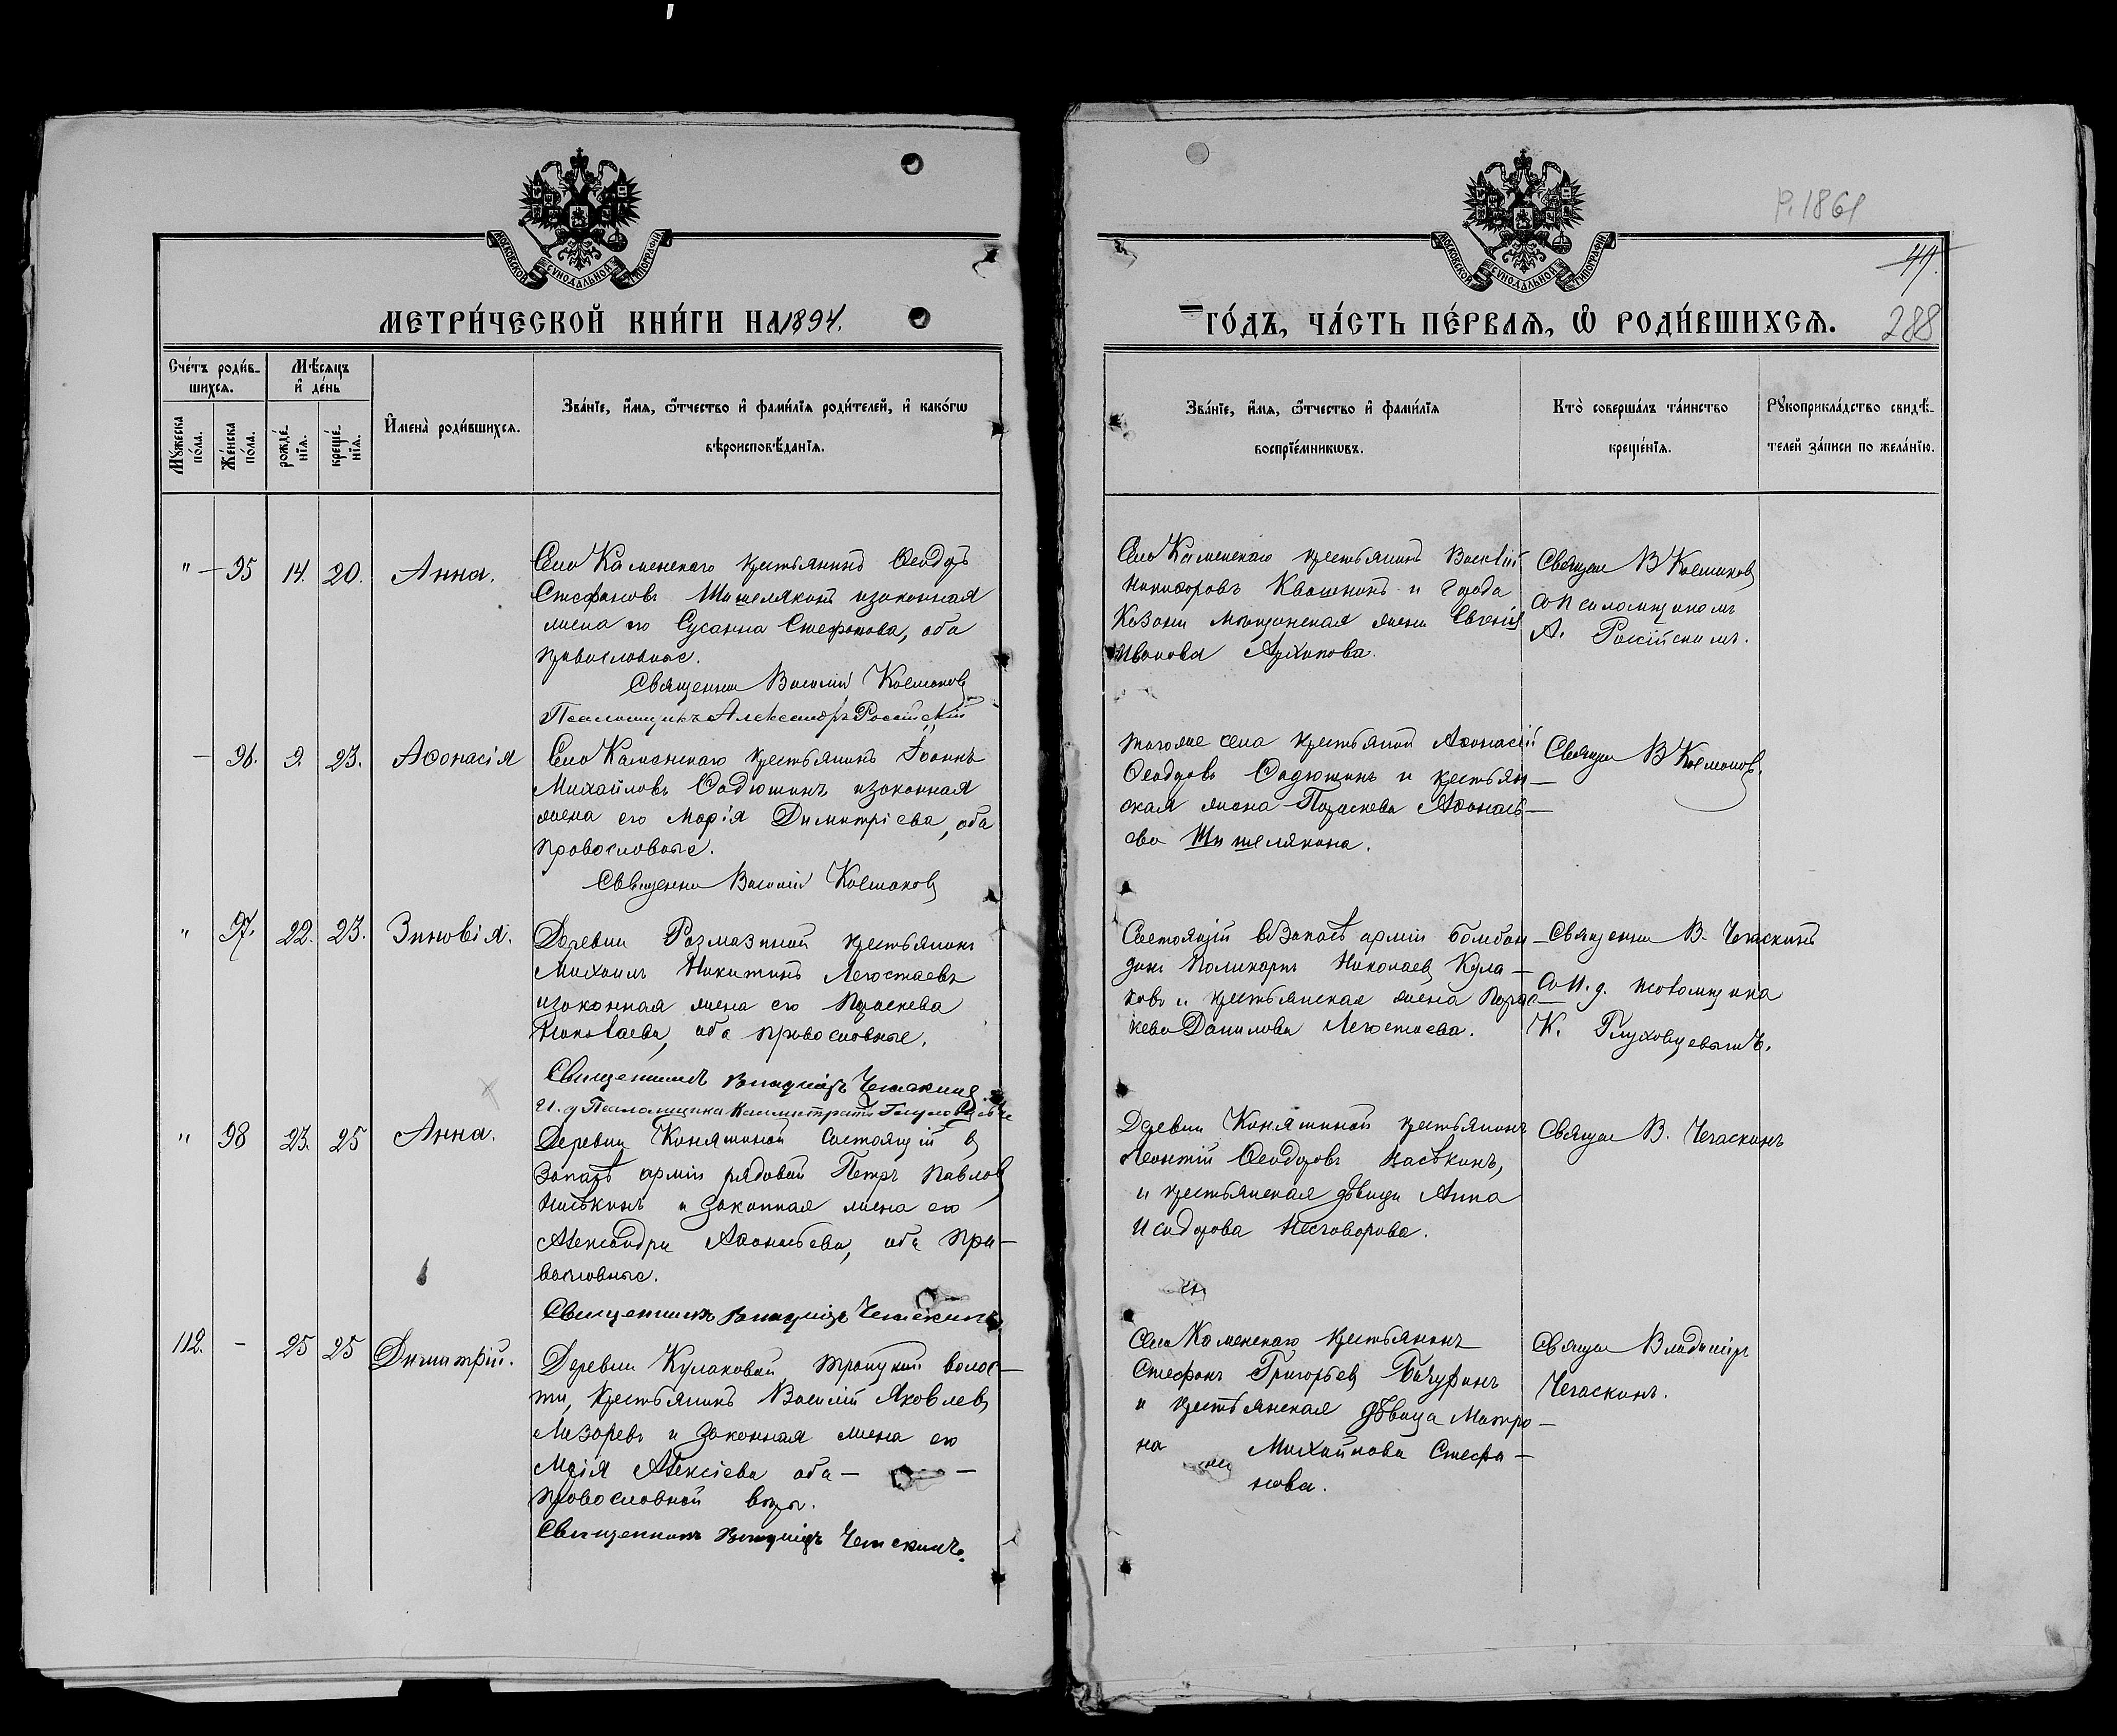 Р. 1861
МОСКОВСКОЙ СѴНОДАЛЬНОЙ ТИПОГРАФІИ
МОСКОВСКОЙ СѴНОДАЛЬНОЙ ТИПОГРАФІИ
МЕТРИ́ЧЕСКОЙ КНИ́ГИ НА 1894.
ГО́ДЪ, ЧА́СТЬ ПЕ́РВАѦ, Ѽ РОДИ́ВШИХСѦ.
288
Сче́тъ роди́в-
шихсѧ.
Мꙋжеска по́ла.
Же́нска по́ла.
Мѣ́сѧцъ
и҆ де́нь
рожде́-
нїѧ.
креще́-
нїѧ.
И҆мена̀ роди́вшихсѧ.
Зва́нїе, и҆́мѧ, ѻ҆́тчество и҆ фами́лїѧ роди́телей, и҆ како́гѡ
вѣроисповѣ́данїѧ.
Зва́нїе, и҆́мѧ, ѻ҆́тчество и҆ фами́лїѧ
воспрїе́мникѡвъ.
Кто̀ соверша́лъ та́инство
креще́нїѧ.
Рꙋкоприкла́дство свидѣ́-
телей за́писи по жела́нїю.
" — 95 14. 20. Анна.
Село Каменскаго крестьянинъ Ѳеодоръ
Стефановъ Шишелякинъ и законная
жена его Сусанна Стефанова, оба
православные.
Священник Василій Колмаков
Псаломщикъ Александръ Россійскій
Село Каменскаго крестьянинъ Василій
Никифоровъ Квашнинъ и города
Казани мѣщанская жена Евгенія
Иванова Архипова.
Священ В Колмаков
со псаломщикомъ
А. Россійскимъ.
— 96. 9. 23. Аѳонасія
Село Каменскаго крестьянинъ Іоаннъ
Михайловъ Садюшинъ и законная
жена его Марія Димитріева, оба
православные.
Священник Василій Колмаков
тогоже села крестьянин Аѳонасій
Ѳеодоровъ Садюшинъ и крестьян—
ская жена Параскева Аѳонась—
ева Шишелякина.
Священ В Колмаков.
" 97. 22. 23. Зиновія.
Деревни Размазиной крестьянинъ
Михаилъ Никитинъ Легостаевъ
и законная жена его Параскева
Николаева, оба православные.
Священникъ Владиміръ Чегаскинъ
И. д Псаломщика Каллистратъ Глуховцевъ
Состоящій въ Запасѣ арміи бомбан—
диръ Поликарпъ Николаев Кула—
ковъ и крестьянская жена Парас—
кева Данилова Легостаева.
Священник В. Чегаскинъ
со И. д. псаломщика
К. Глуховцевымъ.
" 98 23. 25 Анна.
Деревни Коняшиной состоящій в
Запасѣ арміи рядовой Петръ Павлов
и законная жена его
Александра Аѳонасьева, оба пра—
вославные.
Священникъ Владиміръ Чегаскинъ
Деревни Коняшиной крестьянинъ
Леонтій Ѳеодоровъ Васькинъ,
и крестьянская дѣвица Анна
Исидорова Несговорова.
Священ В. Чегаскинъ
112. - 25 25 Димитрій.
Деревни Кулаковой, Троицкой волос—
ти, крестьянинъ Василій Яковлев
Лазаревъ и законная жена его
Марія Алексіева оба —
православной вѣры.
Священникъ Владиміръ Чегаскинъ.
Село Каменскаго крестьянинъ
Стефанъ Григорьев Бачуринъ
и крестьянская дѣвица Матро—
на Михайлова Стефа—
нова.
Священ Владиміръ
Чегаскинъ.